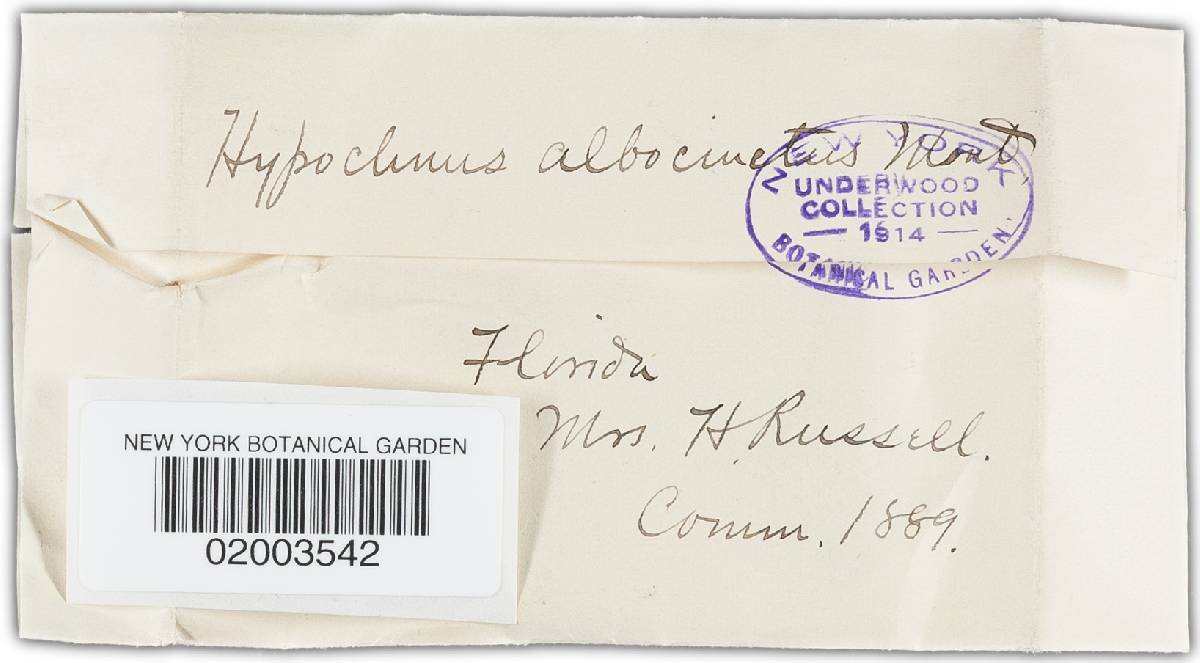 Hypochnus albocinctus Mont.
NEW YORK
UNDERWOOD
COLLECTION
— 1914 —
BOTANICAL GARDEN.
Florida
Mrs. H. Russell.
Comm. 1889.
NEW YORK BOTANICAL GARDEN
02003542